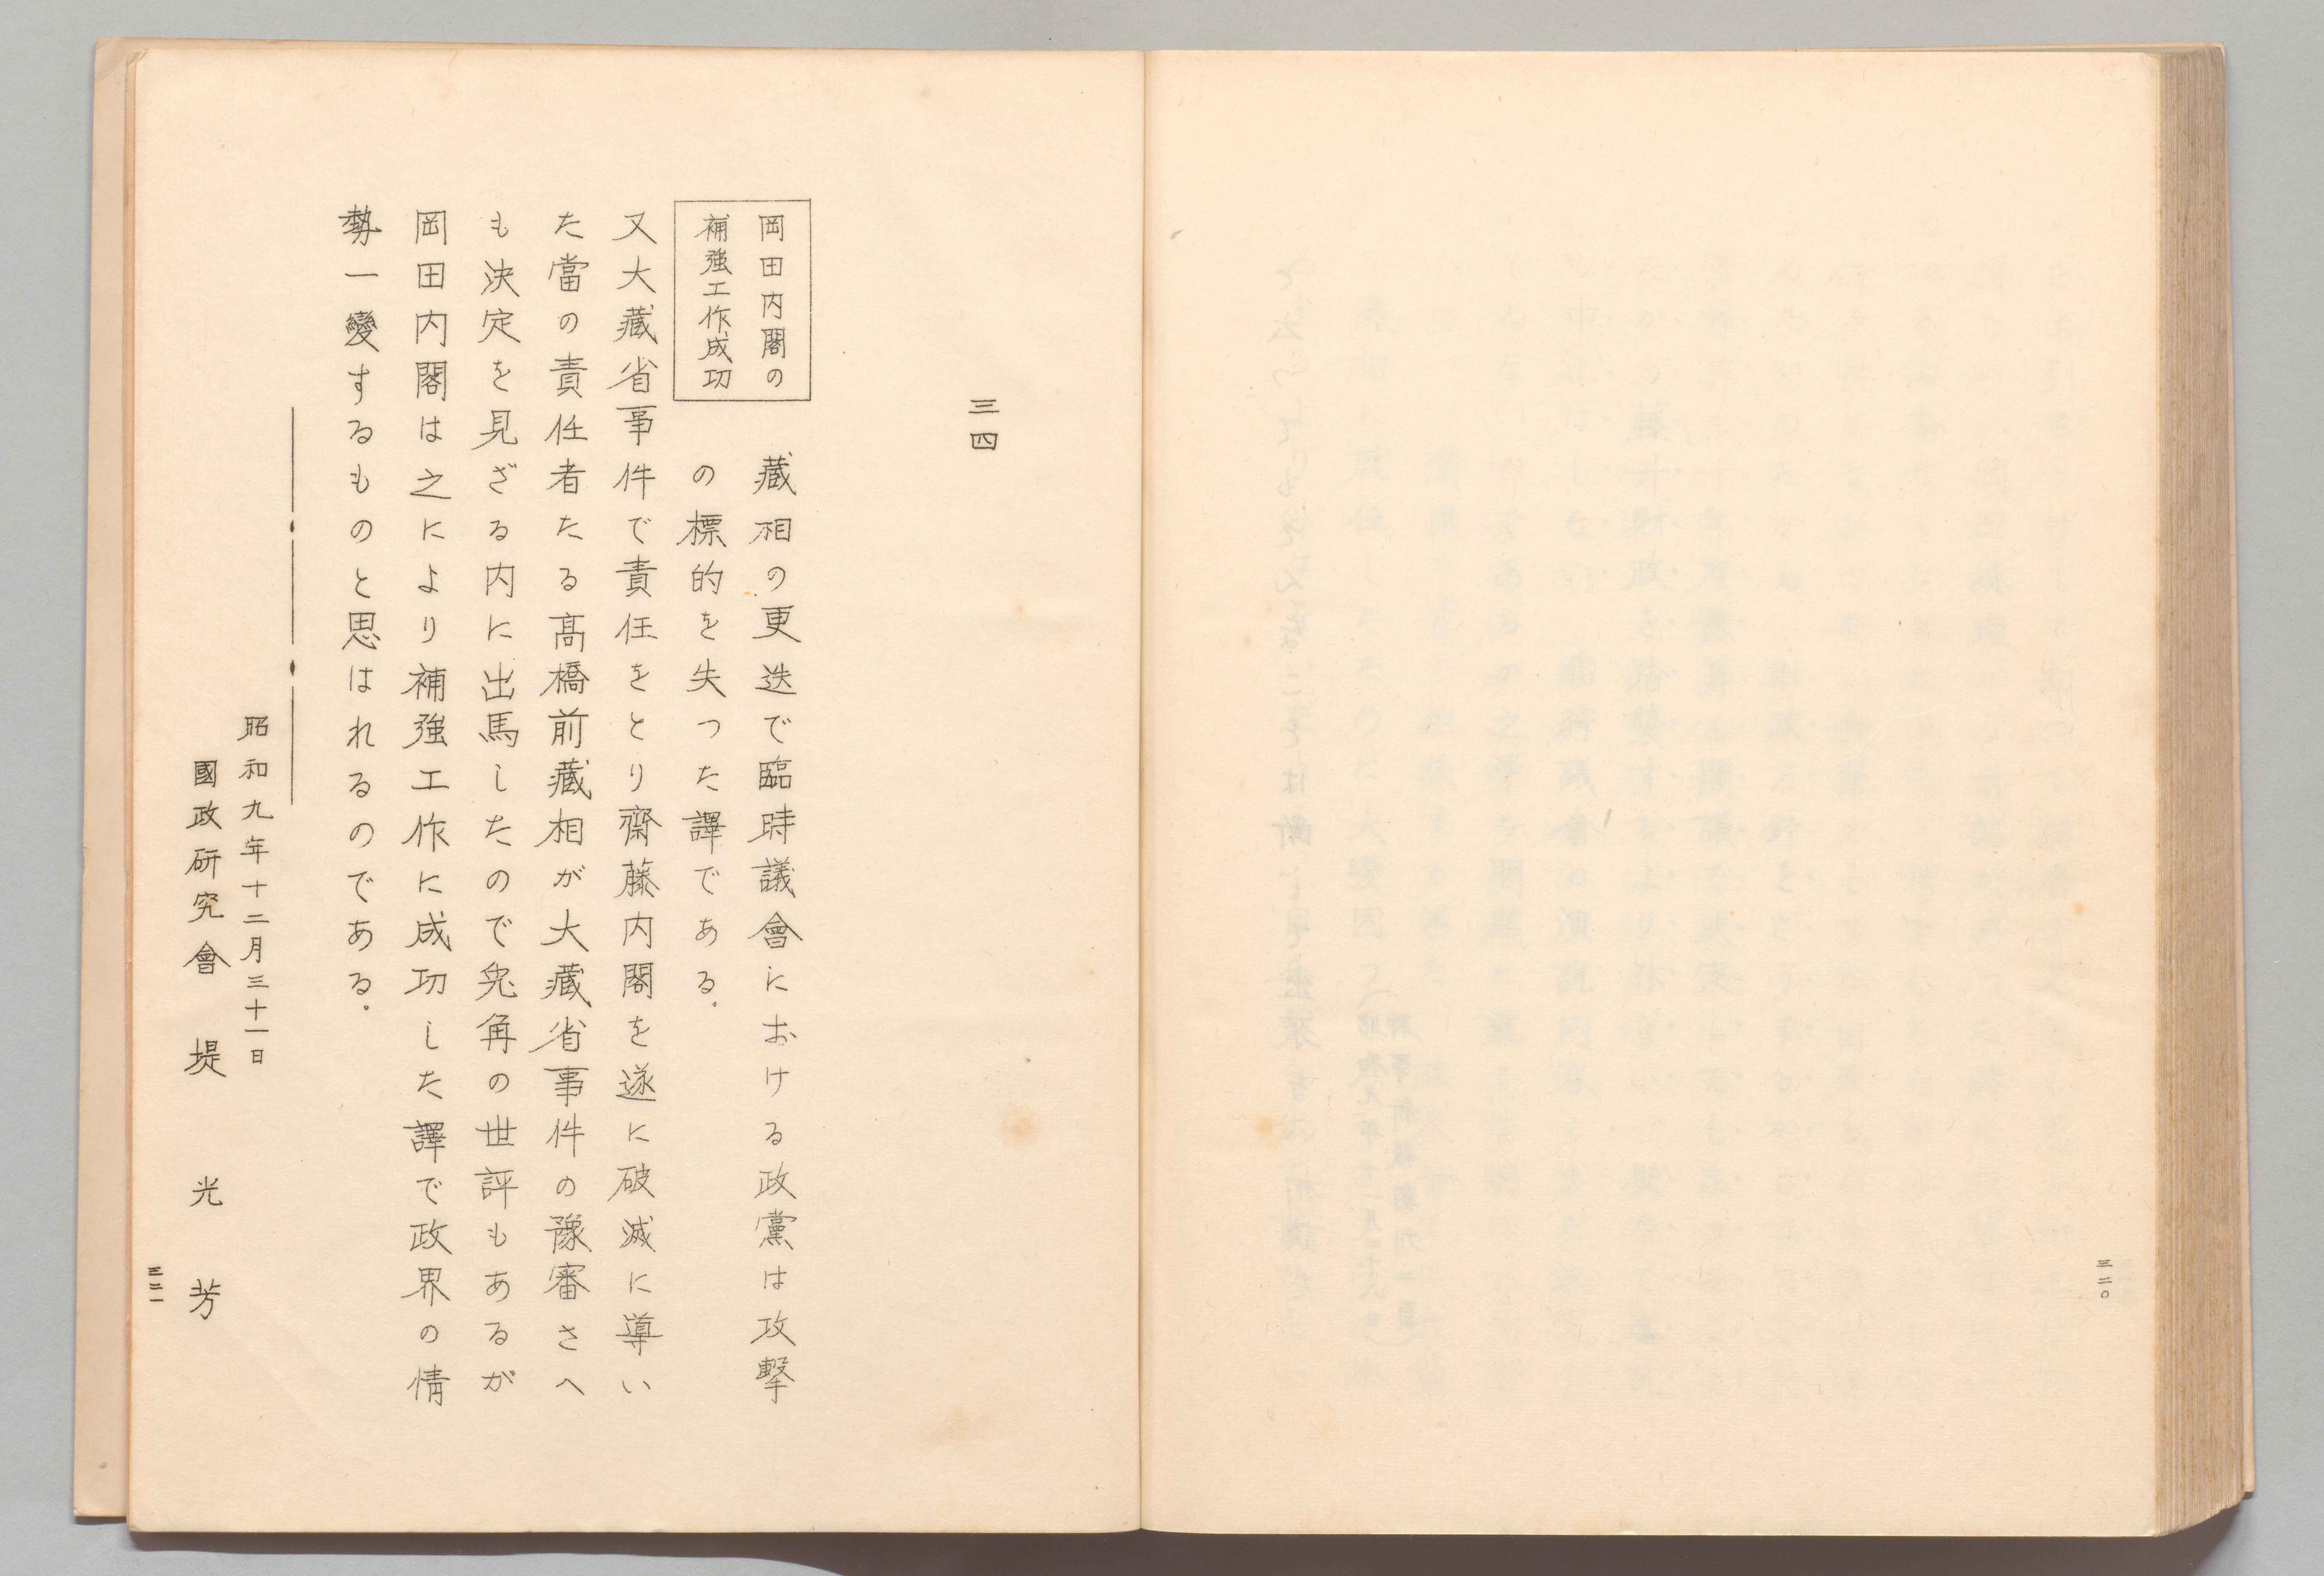 三二〇
三四
岡田内閣の
補強工作成功
藏相の更迭で臨時議會における政黨は攻擊
の標的を失つた譯である.
又大藏省事件で責任をとり齋藤内閣を遂に破滅に導い
た當の責任者たる髙橋前藏相が大藏省事件の豫審さへ
も決定を見ざる内に出馬したので兎角の世評もあるが
岡田内閣は之により補強工作に成功した譯で政界の情
勢一變するものと思はれるのである.
昭和九年十二月三十一日
國政研究會 堤 光 芳
三二一